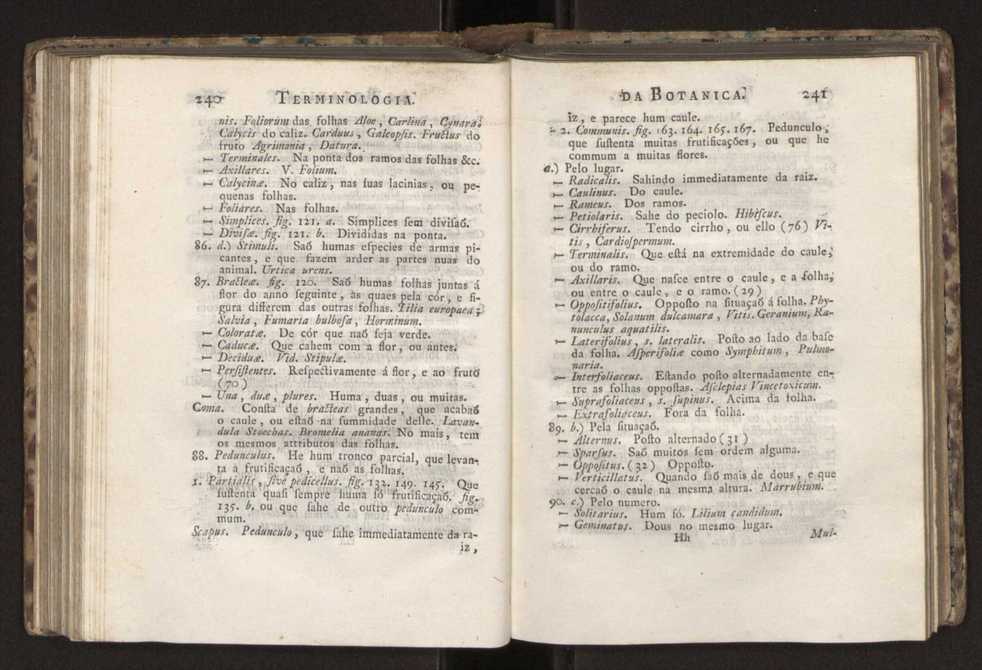 240 TERMINOLOGIA.
nis. Foliorum das folhas Aloe, Carlina, Cynara.
Calycis do caliz. Carduus, Galeopſis. Fructus do
fruto Agrimonia, Datura.
— Terminales. Na ponta dos ramos das folhas &c.
— Axillares. V. Folium.
— Calycinæ. No caliz, nas ſuas lacinias, ou pe-
quenas folhas.
— Foliares. Nas folhas.
— Simplices. fig. 121. a. Simplices ſem diviſaõ.
— Diviſæ. fig. 121. b. Divididas na ponta.
86. d.) Stimuli. Saõ humas eſpecies de armas pi-
cantes, e que fazem arder as partes nuas do
animal. Urtica urens.
87. Bracteæ. fig. 120. Saõ humas folhas juntas á
flor do anno ſeguinte, as quaes pela cór, e fi-
gura differem das outras folhas. Tilia europaea;
Salvia, Fumaria bulboſa, Horminum.
— Coloratæ. De cór que naõ ſeja verde.
— Caducæ. Que cahem com a flor, ou antes.
— Deciduæ. Vid. Stipulæ.
— Perſiſtentes. Reſpectivamente á flor, e ao fruto
(70)
— Una, duæ, plures. Huma, duas, ou muitas.
Coma. Conſta de bracteas grandes, que acabaõ
o caule, ou eſtaõ na ſummidade deſle. Lavan-
dula Stoechas. Bromelia ananas. No mais, tem
os mesmos attributos das folhas.
88. Pedunculus. He hum tronco parcial, que levan-
ta a frutificaçaõ, e naõ as folhas.
1. Partialis, ſive pedicellus. fig. 132. 149. 145. Que
ſuſtenta quaſi ſempre huma ſó frutificaçaõ. fig.
135. b, ou que ſahe de outro pedunculo com-
mum.
Scapus. Pedunculo, que ſahe immediatamente da ra-
iz,
DA BOTANICA. 241
iz, e parece hum caule.
— 2. Communis. fig. 163. 164. 165. 167. Pedunculo,
que ſuſtenta muitas frutificações, ou que he
commum a muitas flores.
a.) Pelo lugar.
— Radicalis. Sahindo immediatamente da raiz.
— Caulinus. Do caule.
— Rameus. Dos ramos.
— Petiolaris. Sahe do peciolo. Hibiſcus.
— Cirrhiferus. Tendo cirrho, ou ello (76) Vi-
tis, Cardioſpermum.
— Terminalis. Que eſtá na extremidade do caule,
ou do ramo.
— Axillaris. Que naſce entre o caule, e a folha,
ou entre o caule, e o ramo. (29)
— Oppoſitifolius. Oppoſto na ſituaçaõ á folha. Phy-
tolacca, Solanum dulcamara, Vitis. Geranium, Ra-
nunculus aquatilis.
— Laterifolius, s. lateralis. Poſto ao lado da baſe
da folha. Aſperifoliæ como Symphitum, Pulmo-
naria.
— Interfoliaceus. Eſtando poſto alternadamente en-
tre as folhas oppoſtas. Aſclepias Vincetoxicum.
— Suprafoliaceus, s. ſupinus. Acima da folha.
— Extrafoliaceus. Fora da folha.
89. b.) Pela ſituaçaõ.
— Alternus. Poſto alternado (31)
— Sparſus. Saõ muitos ſem ordem alguma.
— Oppoſitus. (32) Oppoſto.
— Verticillatus. Quando ſaõ mais de dous, e que
cercaõ o caule na mesma altura. Marrubium.
90. c.) Pelo numero.
— Solitarius. Hum ſó. Lilium candidum.
— Geminatus. Dous no mesmo lugar.
Hh Mul-